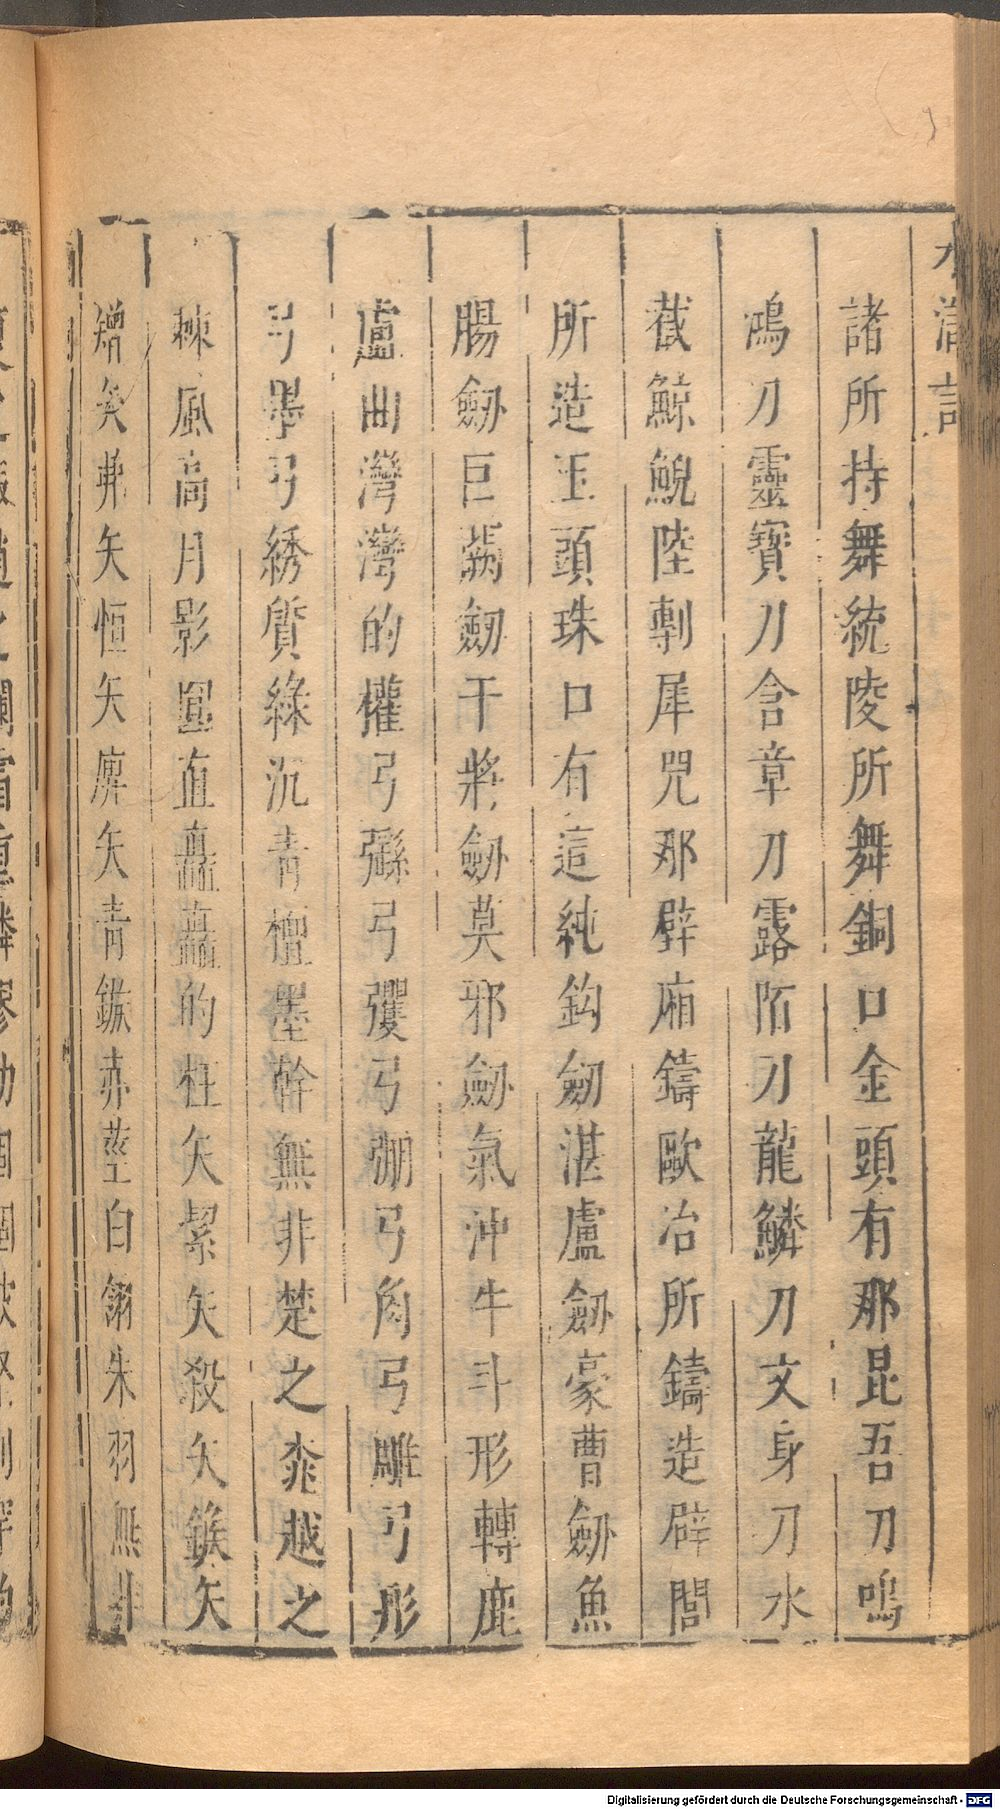 水滸記
諸所持舞統陵所舞銅口金頭有那昆吾刀鳴
鴻刀靈寶刀含章刀露陌刀龍鱗刀文身刀水
截鯨鯢陸剸犀咒那辟廂鑄歐冶所鑄造辟閭
所造玉頭珠口有這純鈎劒湛盧劒豪曹劒魚
腸劒巨蕨劒干將劒莫邪劒氣沖牛斗形轉鹿
盧曲灣灣的權弓弓彏弓弸弓角弓雕弓彤
弓弓綉質綠沉青檀墨幹無非楚之越之
棘風高月影圓直矗矗的枉矢絜矢殺矢鍭矢
矰矢茀矢恒矢庳矢青鏃赤莖白翎朱羽無非